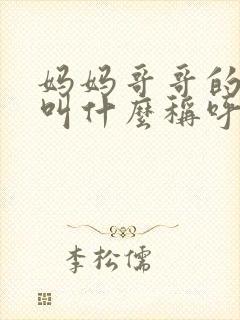 妈妈哥哥的
叫什麽稱呼
李松儒